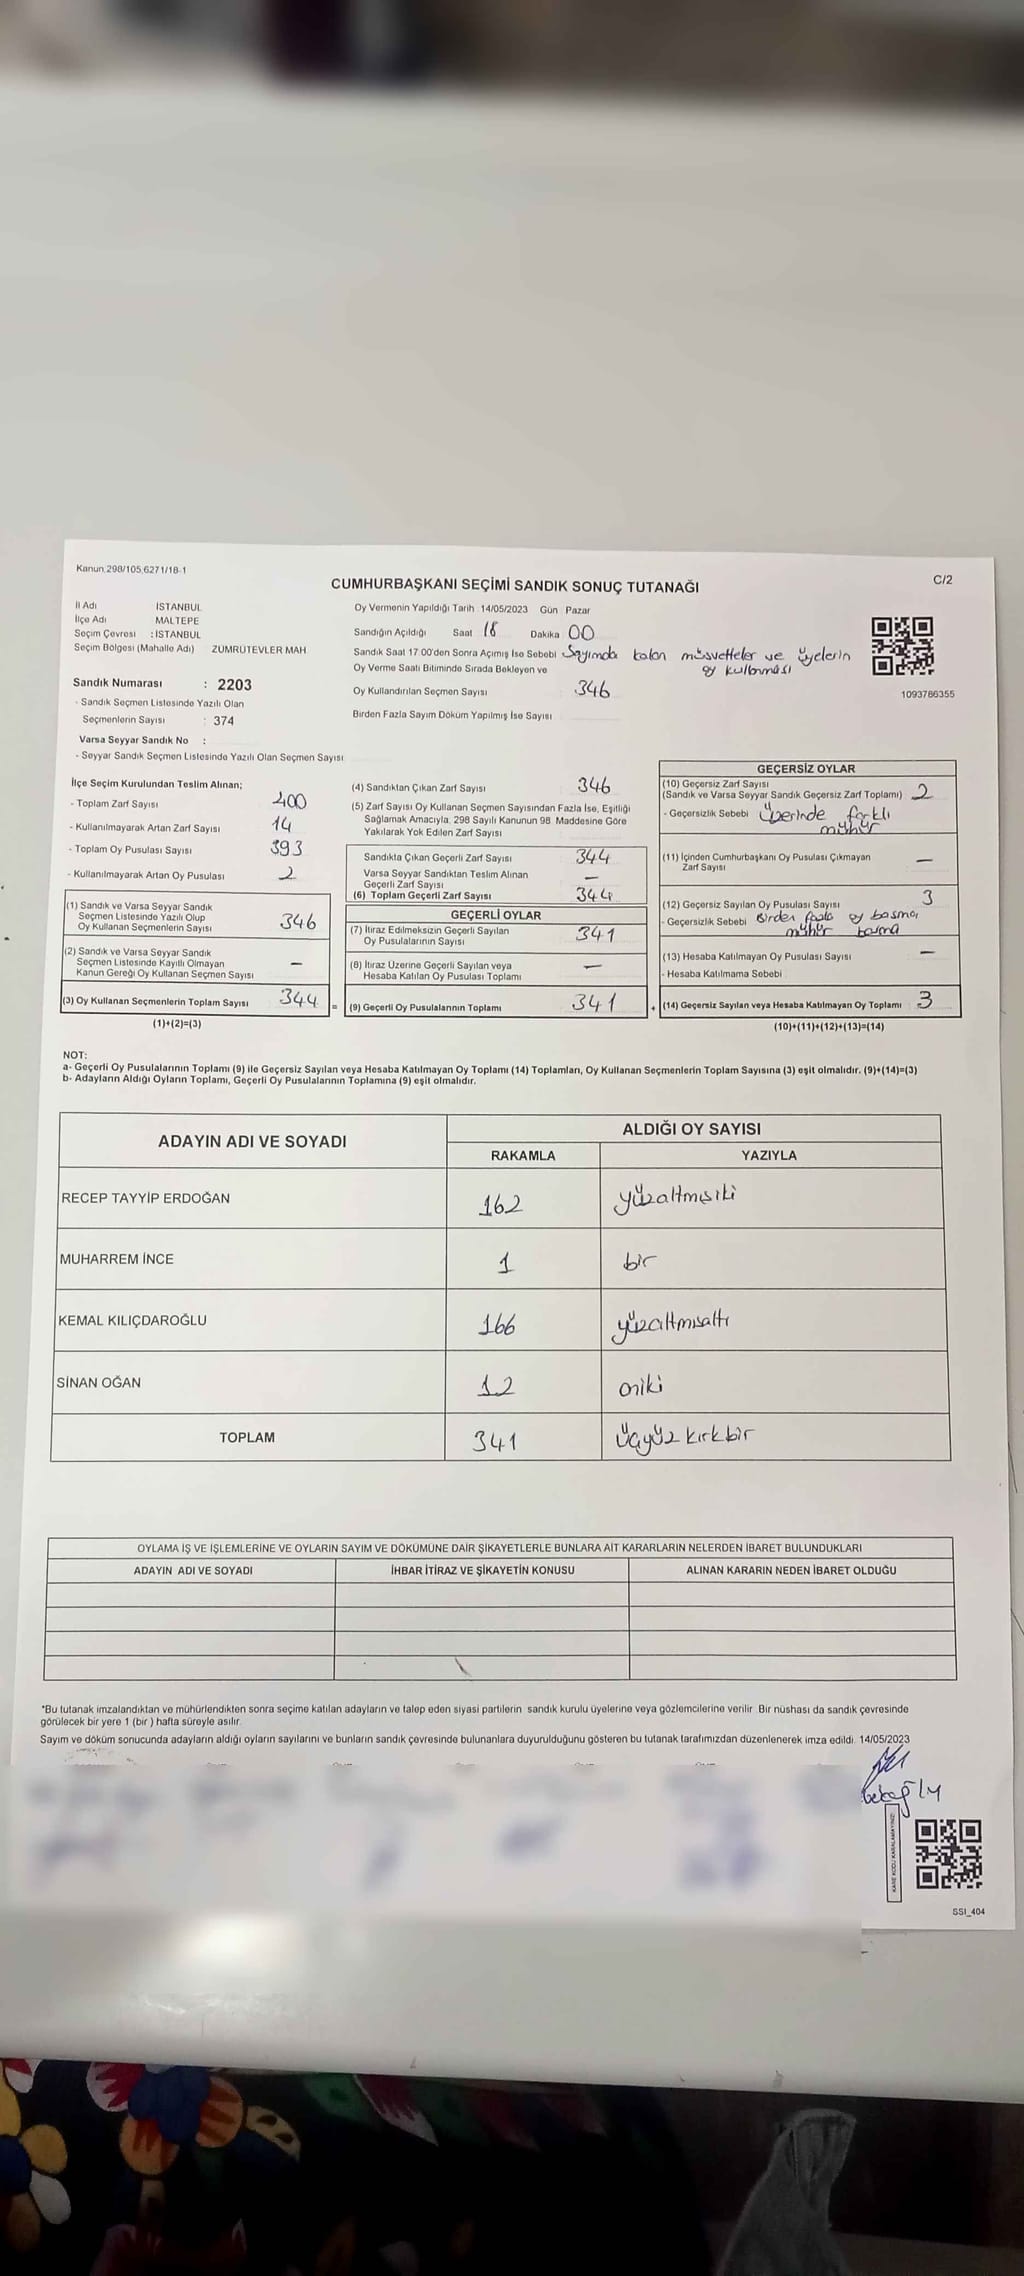 Kanun.298/105,6271/18-1
CUMHURBAŞKANI SEÇİMİ SANDIK SONUÇ TUTANAĞI
C/2
İl Adı İSTANBUL
İlçe Adı MALTEPE
Seçim Çevresi : İSTANBUL
Seçim Bölgesi (Mahalle Adı) ZÜMRÜTEVLER MAH
Sandık Numarası : 2203
- Sandık Seçmen Listesinde Yazılı Olan
Seçmenlerin Sayısı : 374
Varsa Seyyar Sandık No :
- Seyyar Sandık Seçmen Listesinde Yazılı Olan Seçmen Sayısı
Oy Vermenin Yapıldığı Tarih 14/05/2023 Gün Pazar
Sandığın Açıldığı Saat 18 Dakika 00
Sandık Saat 17:00'den Sonra Açımış İse Sebebi Sayımda kalan müsvetteler ve üyelerin
oy kullanması
Oy Verme Saati Bitiminde Sırada Bekleyen ve
Oy Kullandırılan Seçmen Sayısı 346
Birden Fazla Sayım Döküm Yapılmış İse Sayısı
1093786355
İlçe Seçim Kurulundan Teslim Alınan;
- Toplam Zarf Sayısı 400
- Kullanılmayarak Artan Zarf Sayısı 14
- Toplam Oy Pusulası Sayısı 393
- Kullanılmayarak Artan Oy Pusulası 2
(1) Sandık ve Varsa Seyyar Sandık
Seçmen Listesinde Yazılı Olup
Oy Kullanan Seçmenlerin Sayısı 346
(2) Sandık ve Varsa Seyyar Sandık
Seçmen Listesinde Kayıtlı Olmayan
Kanun Gereği Oy Kullanan Seçmen Sayısı –
(3) Oy Kullanan Seçmenlerin Toplam Sayısı 344 =
(1)+(2)=(3)
(4) Sandıktan Çıkan Zarf Sayısı 346
(5) Zarf Sayısı Oy Kullanan Seçmen Sayısından Fazla İse, Eşitliği
Sağlamak Amacıyla, 298 Sayılı Kanunun 98. Maddesine Göre
Yakılarak Yok Edilen Zarf Sayısı
Sandıkta Çıkan Geçerli Zarf Sayısı 344
Varsa Seyyar Sandıktan Teslim Alınan
Geçerli Zarf Sayısı –
(6) Toplam Geçerli Zarf Sayısı 344
GEÇERLİ OYLAR
(7) İtiraz Edilmeksizin Geçerli Sayılan
Oy Pusulalarının Sayısı 341
(8) İtiraz Üzerine Geçerli Sayılan veya
Hesaba Katılan Oy Pusulası Toplamı –
(9) Geçerli Oy Pusulalarının Toplamı 341 +
GEÇERSİZ OYLAR
(10) Geçersiz Zarf Sayısı
(Sandık ve Varsa Seyyar Sandık Geçersiz Zarf Toplamı) 2
- Geçersizlik Sebebi Üzerinde farklı
mühür
(11) İçinden Cumhurbaşkanı Oy Pusulası Çıkmayan
Zarf Sayısı –
(12) Geçersiz Sayılan Oy Pusulası Sayısı 3
- Geçersizlik Sebebi Birden fazla oy basma
mühür basma
(13) Hesaba Katılmayan Oy Pusulası Sayısı –
- Hesaba Katılmama Sebebi
(14) Geçersiz Sayılan veya Hesaba Katılmayan Oy Toplamı 3
(10)+(11)+(12)+(13)=(14)
NOT:
a- Geçerli Oy Pusulalarının Toplamı (9) ile Geçersiz Sayılan veya Hesaba Katılmayan Oy Toplamı (14) Toplamları, Oy Kullanan Seçmenlerin Toplam Sayısına (3) eşit olmalıdır. (9)+(14)=(3)
b- Adayların Aldığı Oyların Toplamı, Geçerli Oy Pusulalarının Toplamına (9) eşit olmalıdır.
ADAYIN ADI VE SOYADI
ALDIĞI OY SAYISI
RAKAMLA YAZIYLA
RECEP TAYYİP ERDOĞAN 162 yüzaltmışiki
MUHARREM İNCE 1 bir
KEMAL KILIÇDAROĞLU 166 yüzaltmışaltı
SİNAN OĞAN 12 oniki
TOPLAM 341 üçyüz kırkbir
OYLAMA İŞ VE İŞLEMLERİNE VE OYLARIN SAYIM VE DÖKÜMÜNE DAİR ŞİKAYETLERLE BUNLARA AİT KARARLARIN NELERDEN İBARET BULUNDUKLARI
ADAYIN ADI VE SOYADI İHBAR İTİRAZ VE ŞİKAYETİN KONUSU ALINAN KARARIN NEDEN İBARET OLDUĞU
*Bu tutanak imzalandıktan ve mühürlendikten sonra seçime katılan adayların ve talep eden siyasi partilerin sandık kurulu üyelerine veya gözlemcilerine verilir. Bir nüshası da sandık çevresinde
görülecek bir yere 1 (bir ) hafta süreyle asılır.
Sayım ve döküm sonucunda adayların aldığı oyların sayılarını ve bunların sandık çevresinde bulunanlara duyurulduğunu gösteren bu tutanak tarafımızdan düzenlenerek imza edildi. 14/05/2023
KARE KODU KARALAMAYINIZ!
SSI_404